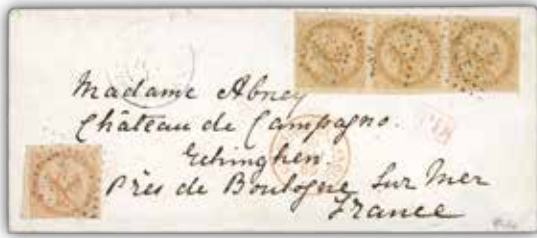 Madame Abney
Château de Campagno.
Echinghen.
Près de Boulogne Sur Mer
France